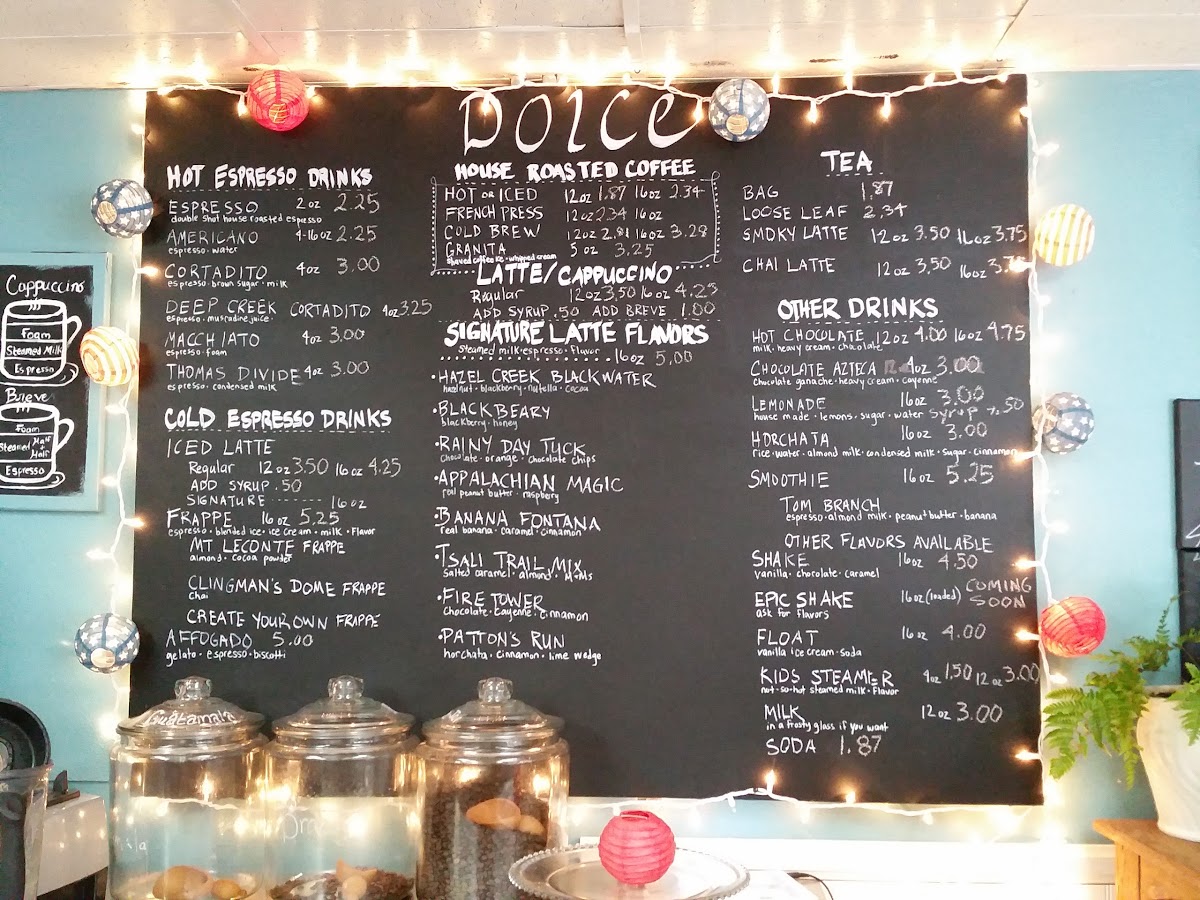 DOLCE
HOT ESPRESSO DRINKS
ESPRESSO 2oz 2.25
double shot house roasted espresso
AMERICANO 4-16oz 2.25
espresso · water
CORTADITO 4oz 3.00
espresso · brown sugar · milk
DEEP CREEK CORTADITO 4oz 3.25
espresso · muscadine juice
MACCHIATO 4oz 3.00
espresso · foam
THOMAS DIVIDE 4oz 3.00
espresso · condensed milk
COLD ESPRESSO DRINKS
ICED LATTE
Regular 12oz 3.50 16oz 4.25
ADD SYRUP .50
SIGNATURE ------- 16oz
FRAPPE 16oz 5.25
espresso · blended ice · ice cream · milk · flavor
MT LECONTE FRAPPE
almond · cocoa powder
CLINGMAN'S DOME FRAPPE
chai
CREATE YOUR OWN FRAPPE
AFFOGADO 5.00
gelato · espresso · biscotti
HOUSE ROASTED COFFEE
HOT OR ICED 12oz 1.87 16oz 2.34
FRENCH PRESS 12oz 2.34 16oz
COLD BREW 12oz 2.81 16oz 3.28
GRANITA 5oz 3.25
shaved coffee ice · whipped cream
LATTE/CAPPUCCINO
Regular 12oz 3.50 16oz 4.25
ADD SYRUP .50 ADD BREVE 1.00
SIGNATURE LATTE FLAVORS
steamed milk · espresso · flavor
16oz 5.00
· HAZEL CREEK BLACKWATER
hazelnut · blackberry · nutella · cocoa
· BLACKBEARY
blackberry · honey
· RAINY DAY TUCK
chocolate · orange · chocolate chips
· APPALACHIAN MAGIC
real peanut butter · raspberry
· BANANA FONTANA
real banana · caramel · cinnamon
· TSALI TRAIL MIX
salted caramel · almond · M+Ms
· FIRE TOWER
chocolate · cayenne · cinnamon
· PATTON'S RUN
horchata · cinnamon · lime wedge
TEA
BAG 1.87
LOOSE LEAF 2.34
SMOKY LATTE 12oz 3.50 16oz 3.75
CHAI LATTE 12oz 3.50 16oz 3.75
OTHER DRINKS
HOT CHOCOLATE 12oz 4.00 16oz 4.75
milk · heavy cream · chocolate
CHOCOLATE AZTECA 4oz 3.00
chocolate ganache · heavy cream · cayenne
LEMONADE 16oz 3.00
house made · lemons · sugar · water syrup +.50
HORCHATA 16oz 3.00
rice · water · almond milk · condensed milk · sugar · cinnamon
SMOOTHIE 16oz 5.25
TOM BRANCH
espresso · almond milk · peanut butter · banana
OTHER FLAVORS AVAILABLE
SHAKE 16oz 4.50
vanilla · chocolate · caramel
EPIC SHAKE 16oz (loaded) COMING SOON
ask for flavors
FLOAT 16oz 4.00
vanilla ice cream · soda
KIDS STEAMER 4oz 1.50 12oz 3.00
not-so-hot steamed milk · flavor
MILK 12oz 3.00
in a frosty glass if you want
SODA 1.87
Cappuccino
Foam
Steamed Milk
Espresso
Breve
Foam
Steamed Half + Half
Espresso
Guatemala